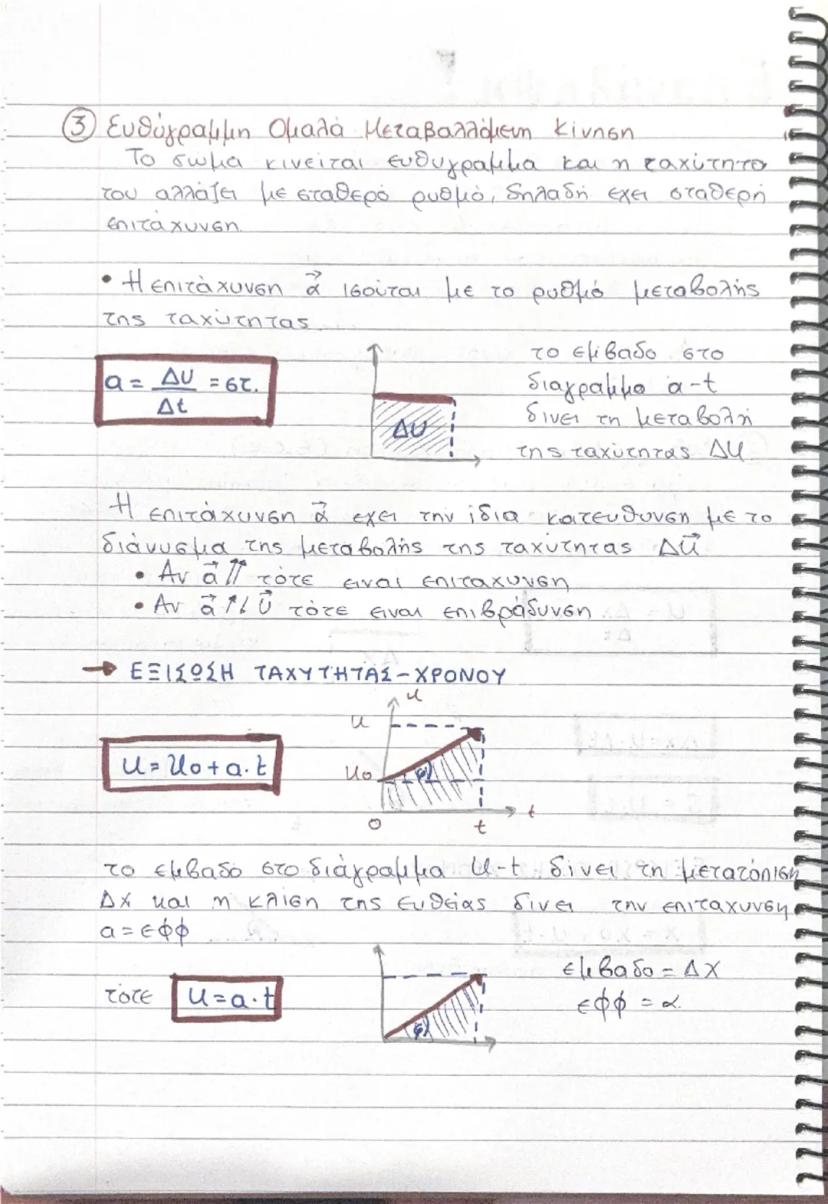 ③ Ευθύγραμμη Ομαλά Μεταβαλλόμενη Κίνηση
Το σωμα κινείται ευθυγραμμα και η ταχύτητα
του αλλάζει με σταθερό ρυθμό, δηλαδή εχει σταθερή
επιτάχυνση.
• Η επιτάχυνση α⃗ ισούται με το ρυθμό μεταβολής
της ταχύτητας.
a = ΔU/Δt = στ.
ΔU
το εμβαδο στο
διαγραμμα a-t
δινει τη μεταβολή
της ταχύτητας ΔU
Η επιτάχυνση α⃗ εχει την ίδια κατευθυνση με το
διάνυσμα της μεταβολής της ταχύτητας Δu⃗
• Αν a⃗ ⇈ τότε ειναι επιταχυνση
• Αν a⃗ ↑↓ υ⃗ τότε ειναι επιβράδυνση
→ ΕΞΙΣΩΣΗ ΤΑΧΥΤΗΤΑΣ - ΧΡΟΝΟΥ
u = uo + a·t
u
u
uo
φ
0
t
t
το εμβαδο στο διάγραμμα u-t δίνει τη μετατόπιση
Δx και η κλιση της ευθείας δινει την επιταχυνση
a = εφφ
τότε u = a·t
φ
εμβαδο = Δx
εφφ = α